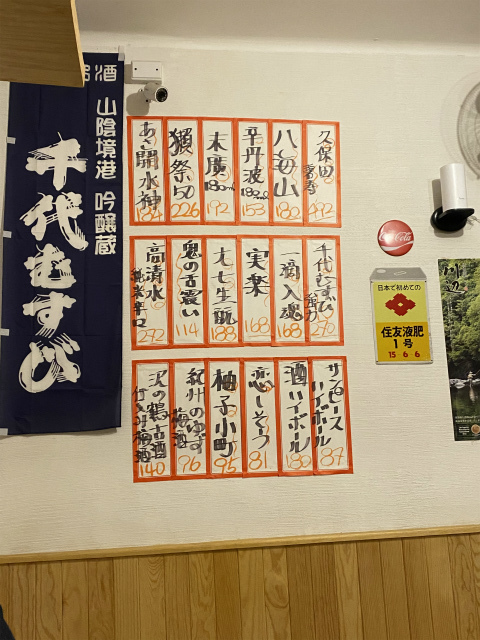 酒
山陰境港 吟醸蔵
千代むすび
久保田
492
八海山
180
丹波
153
末廣
180ml
192
獺祭50
226
あさ開水神
184
千代むすび
292
一滴入魂
168
実楽
168
七生
188
鬼の舌震い
114
高清水
純米辛口
292
サンピース
ハイボール
87
酒ハイボール
180
恋しそう
81
柚子小町
95
紀州のゆず
梅酒
96
沢の鶴古酒
仕込み梅酒
140
Coca-Cola
日本で初めての
住友液肥
1号
15 6 6
川辺